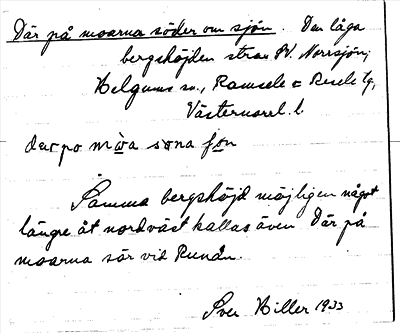 Där på moarna söder om sjön. Den låga
bergshöjden strax V. Norrsjön,
Helgums sn., Ramsele o Resele tg,
Västernorrl. l.
där po mòa sǝna fǝn
Samma bergshöjd möjligen något
längre åt nordväst kallas även Där på
moarna sör vid Rundn.
Sven Hiller 1933